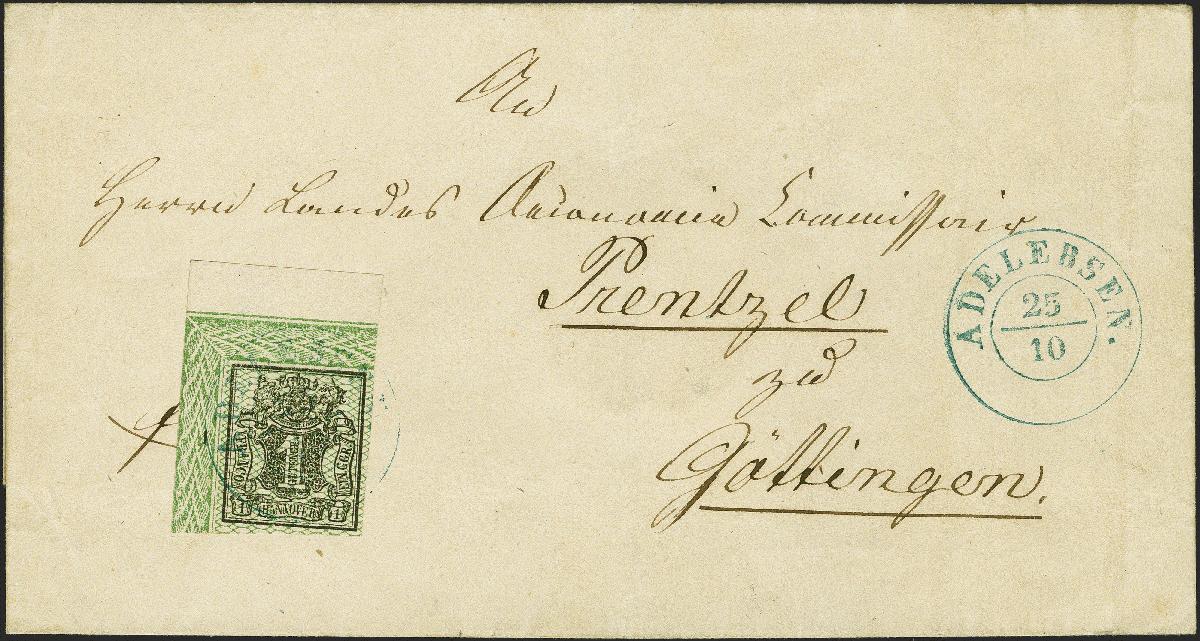 An
Herrn Landes Oeconomie Commissair
Prentzel
zu
Göttingen.
ADELEBSEN.
25
10
1
HANNOVER
1 1